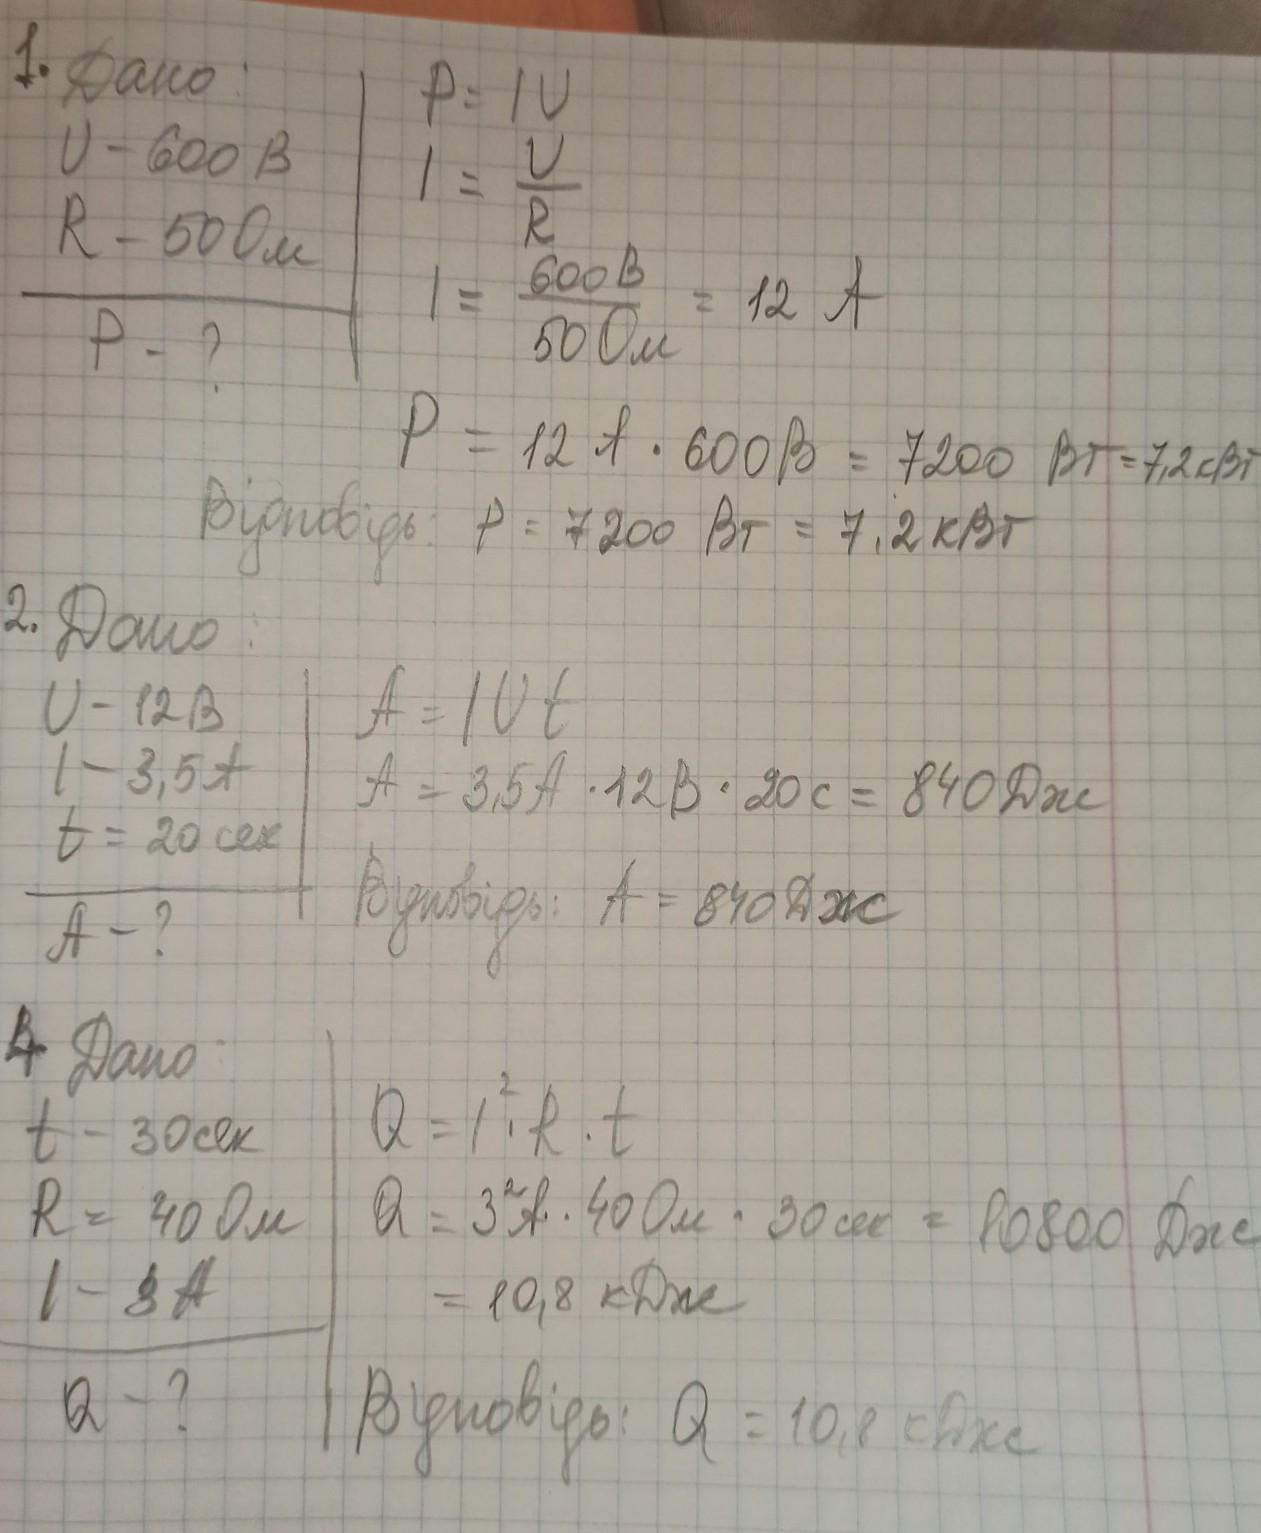 1. Дано:
U - 600 В
R - 50 Ом
P - ?
P = I U
I = U / R
I = 600 В / 50 Ом = 12 А
P = 12 А · 600 В = 7200 Вт = 7,2 кВт
Відповідь: P = 7200 Вт = 7,2 кВт
2. Дано:
U - 12 В
I - 3,5 А
t = 20 сек
A - ?
A = I U t
A = 3,5 А · 12 В · 20 с = 840 Дж
Відповідь: A = 840 Дж
4 Дано:
t - 30 сек
R = 40 Ом
I - 3 А
Q - ?
Q = I² · R · t
Q = 3² А · 40 Ом · 30 сек = 10800 Дж
= 10,8 кДж
Відповідь: Q = 10,8 кДж